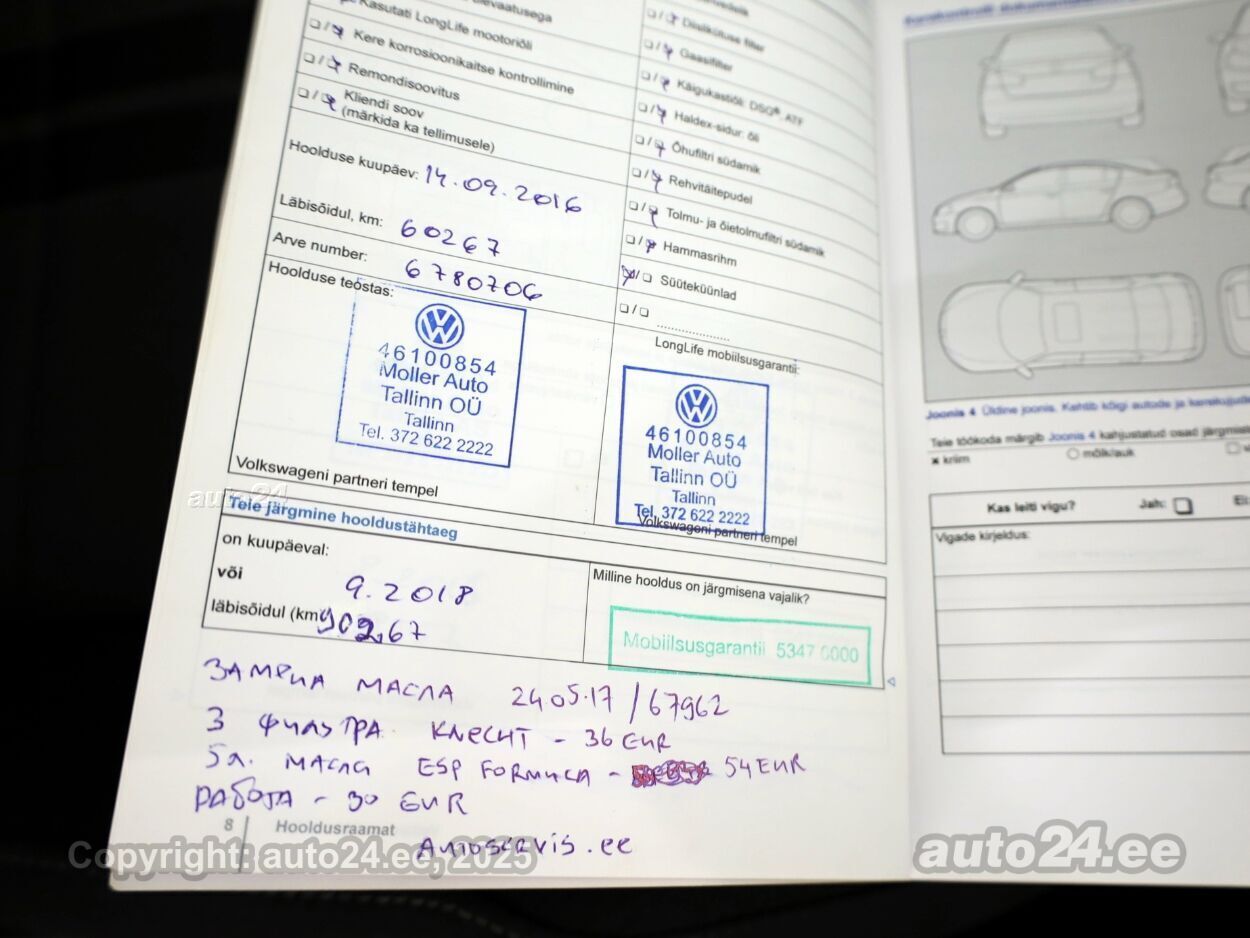 Kasutati LongLife mootoriõli
Kere korrosioonikaitse kontrollimine
Remondisoovitus
Kliendi soov
(märkida ka tellimusele)
Hoolduse kuupäev: 14.09.2016
Läbisõidul, km: 60267
Arve number: 6780706
Hoolduse teostas:
46100854
Moller Auto
Tallinn OÜ
Tallinn
Tel. 372 622 2222
Volkswageni partneri tempel
Gaasifilter
Käigukastiõli: DSG®, ATF
Haldex-sidur: õli
Õhufiltri südamik
Rehvitäitepudel
Tolmu- ja õietolmufiltri südamik
Hammasrihm
Süüteküünlad
LongLife mobiilsusgarantii:
46100854
Moller Auto
Tallinn OÜ
Tallinn
Tel. 372 622 2222
Volkswageni partneri tempel
Teie järgmine hooldustähtaeg
on kuupäeval:
9.2018
või
läbisõidul (km) 90267
Milline hooldus on järgmisena vajalik?
Mobiilsusgarantii 5347 0000
ЗАМЕНА МАСЛА 24.05.17 / 67962
3 ФИЛЬТРА KNECHT - 36 EUR
5л. МАСЛА ESP FORMULA - 54 EUR
РАБОТА - 30 EUR
AUTOSERVIS.ee
8 Hooldusraamat
Joonis 4 Üldine joonis. Kehtib kõigi autode ja
Teie töökoda märgib Joonis 4 kahjustatud osad
kriim mõlk/auk
Kas leiti vigu? Jah:
Vigade kirjeldus:
auto24
Copyright: auto24.ee, 2025
auto24.ee